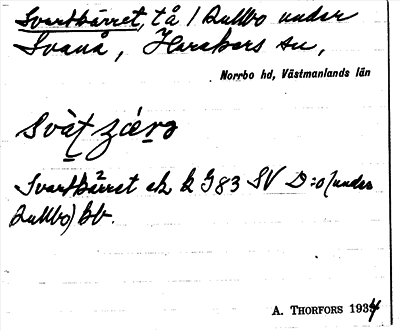 Svartkärret, tå / Dullbo under
Svanå, Harakers sn,
Norrbo hd, Västmanlands län
Svartkärret ek k J 83 SV D:o (under
Dullbo) bb.
A. THORFORS 1934